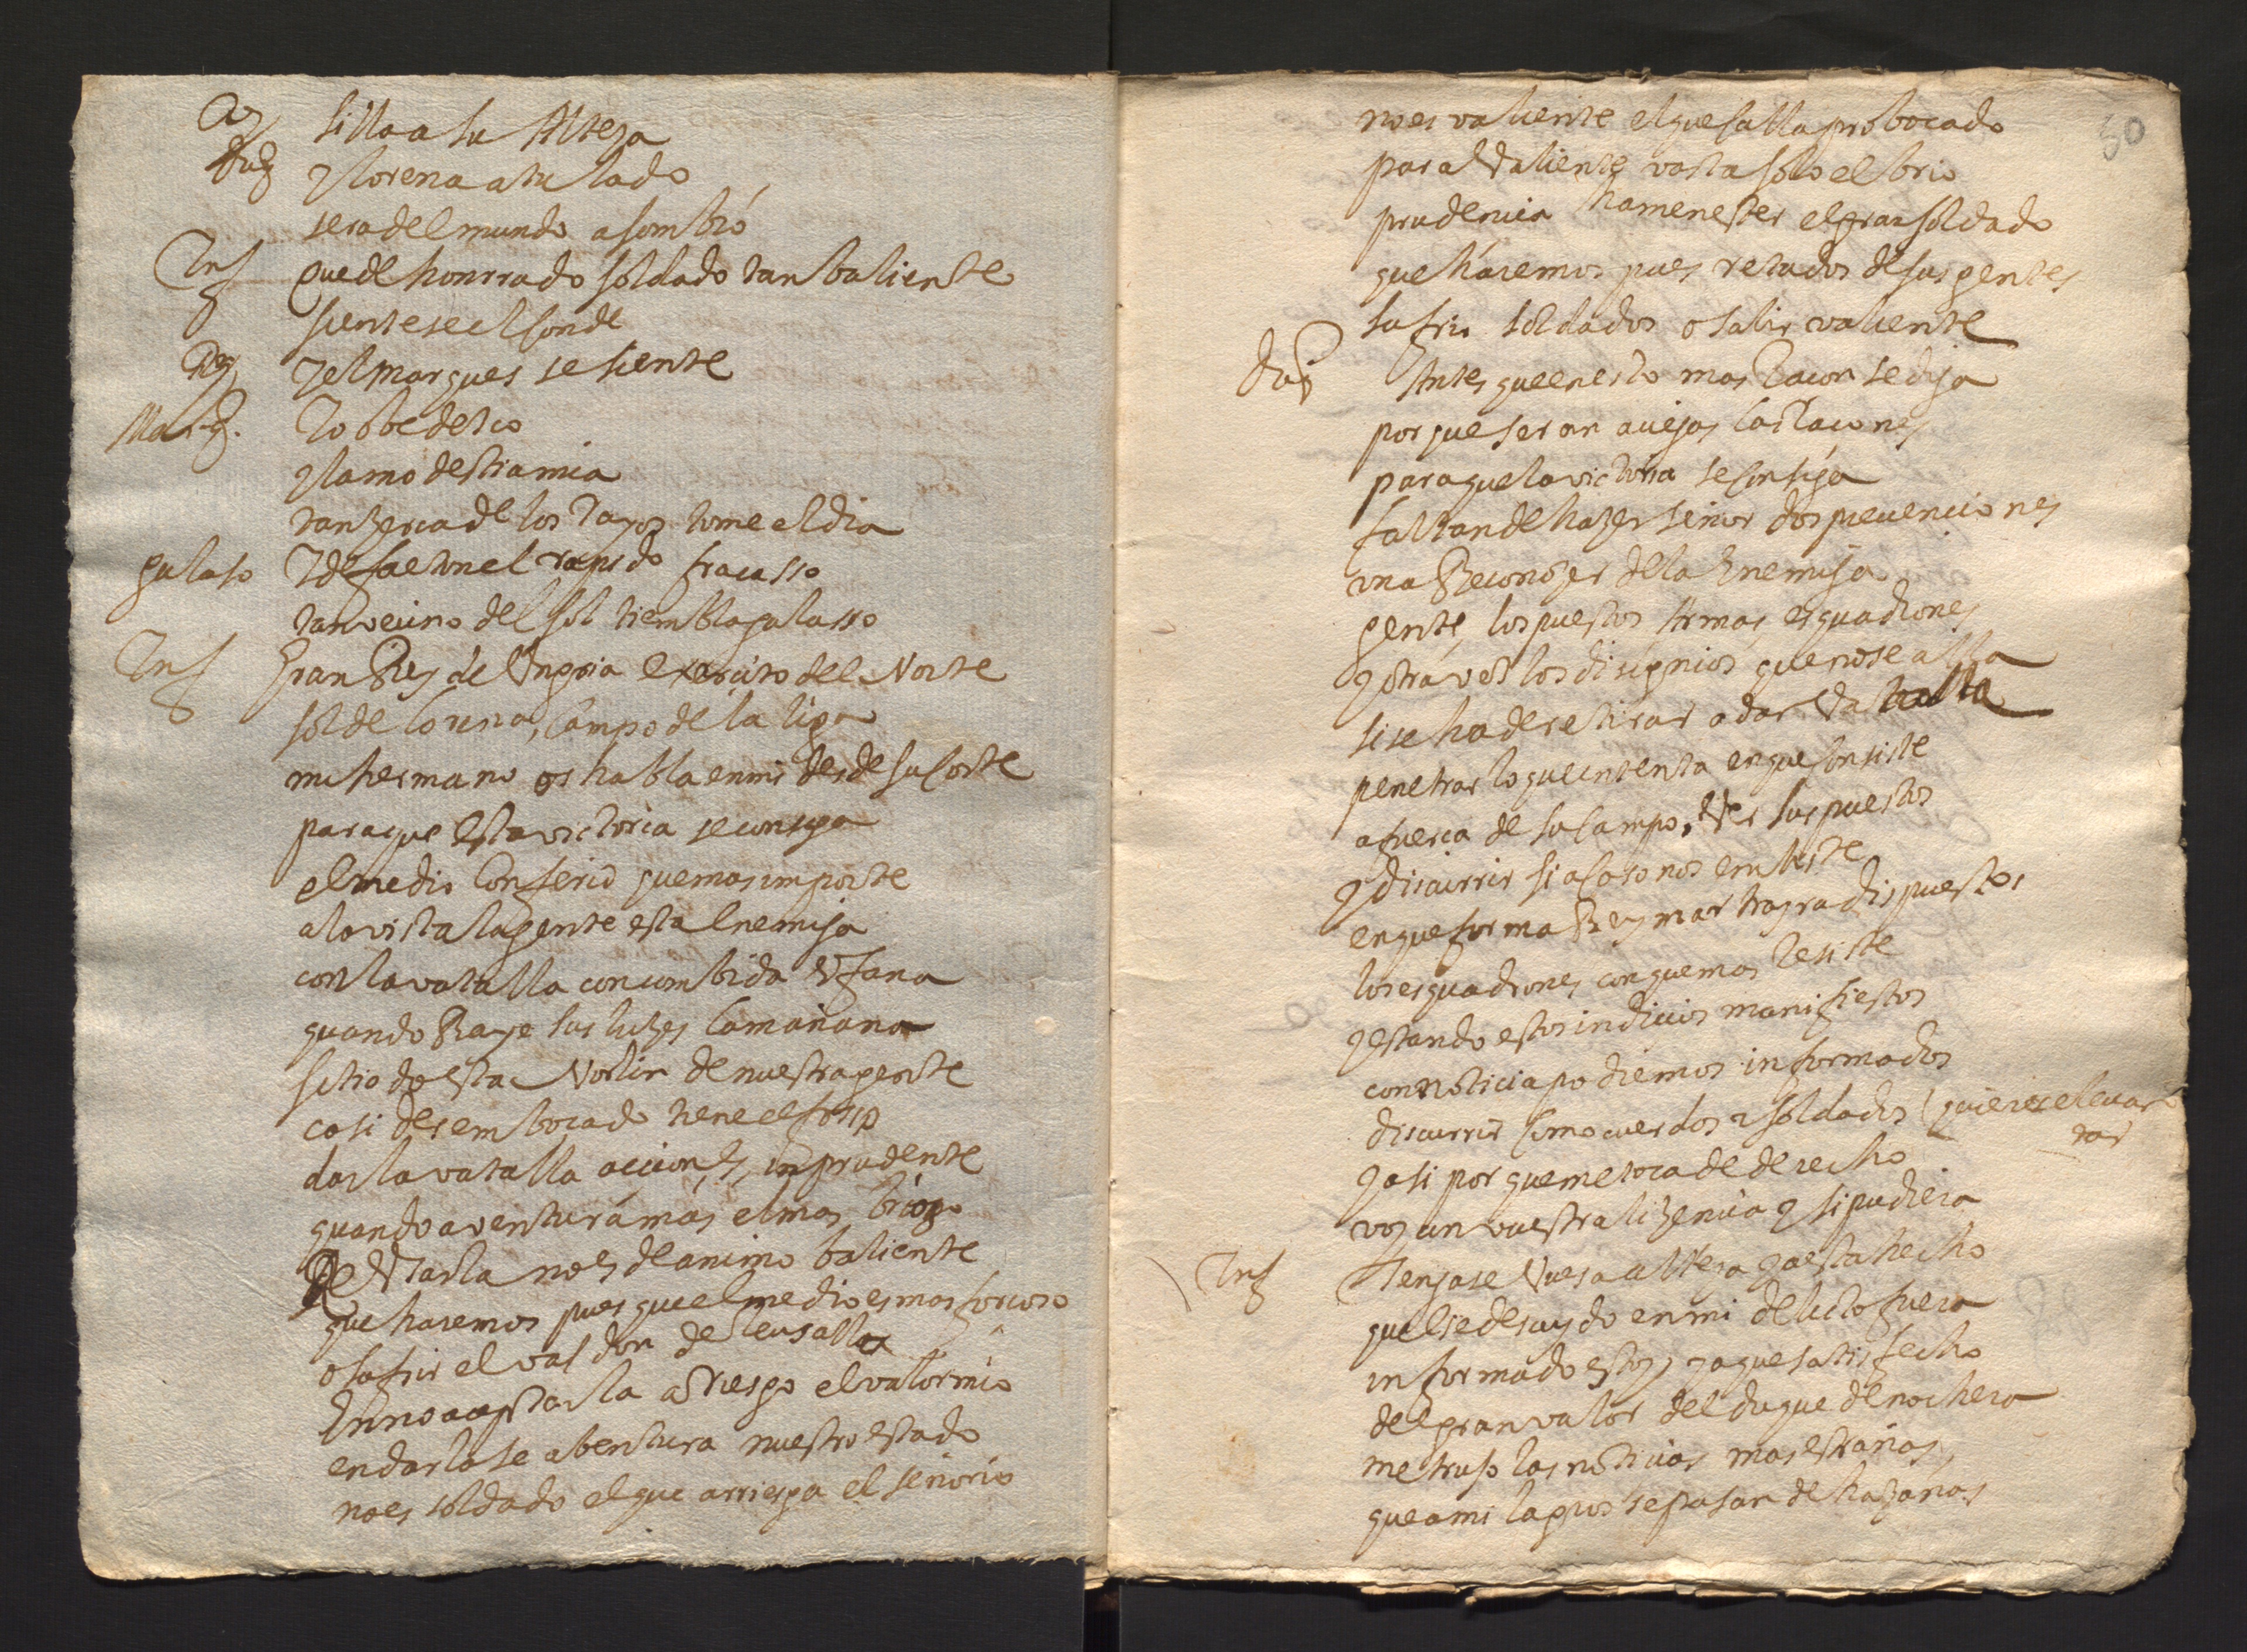 Rey silla a su Alteza
Duq y lorena a tu lado
sera del mundo asombro
Inf que de honrrado soldado tan baliente
sientese el conde
Rey y el marques se siente
Marq. Yo obedezco
y la modestia mia
tan zerca de los rayos tome el dia
galaso y de faeton el rapido fracasso
tan vecino del sol tiembla galasso
Inf Gran Rey de Vngria exercito del Norte
sol de lorena, campo de la liga
mi hermano os habla en mi desde su corte
para que esta victoria se consiga
el medio conferid que mas importe
a la vista la gente esta enemiga
con la vatalla con combida Vfana
quando Raye sus luzes la mañana
sitio do esta Norlin de nuestra gente
casi desembocado tiene el foso
dar la vatalla accion es inprudente
quando aventura mas el mas brioso
Reusarla no es de animo baliente
que haremos pues que el medio es mas forcoso
o sufrir el valdon de Reusalla
en no aceptarla arriesgo el valor mio
en darla se abentura nuestro estado
no es soldado el que arriesga el señorio
50
no es valiente el que se alla probocado
para Valiente vasta solo el brio
prudencia ha menester el gran soldado
que haremos pues retados de sus gentes
sufrir soldados o salir valiente
Duq Antes que en esto mas Racon se diga
porque seran aviejas las Racones
para que la victoria se consiga
faltan de hazer señor dos prevenciones
vna Reconozer de la enemiga
gente, los puestos Armas esquadrones
y otra vez los disignios que no se alla
si se ha de retirar a dar Vatalla
penetrar lo que intenta en que consiste
a fuerca de su campo, Ver sus puestos
y discurrir si acaso nos embiste
en que forma Buymar trayra dispuestos
los esquadrones con que mas Resiste
y estando estos indicios manifiestos
con noticia podremos informados
discurrir como cuerdos y soldados (quierese levan
tar
y asi por que me toca de derecho
voy con vuestra lizencia y si pudiera
Inf Tengase Vuesa alteza ya esta hecho
que ese descuydo en mi delicto fuera
informado estoy, ya que satisfecho
del gran valor del duque de nochera
me trujo las noticias mas estrañas
que a milagros se pasan de hazañas